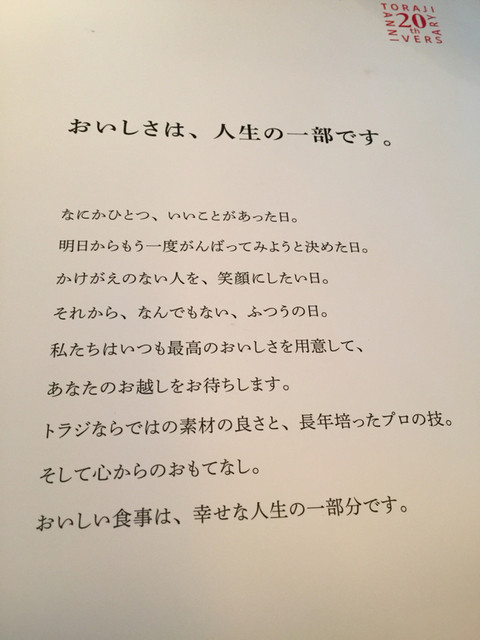 TORAJI
20th
ANNIVERSARY
おいしさは、人生の一部です。
なにかひとつ、いいことがあった日。
明日からもう一度がんばってみようと決めた日。
かけがえのない人を、笑顔にしたい日。
それから、なんでもない、ふつうの日。
私たちはいつも最高のおいしさを用意して、
あなたのお越しをお待ちします。
トラジならではの素材の良さと、長年培ったプロの技。
そして心からのおもてなし。
おいしい食事は、幸せな人生の一部分です。